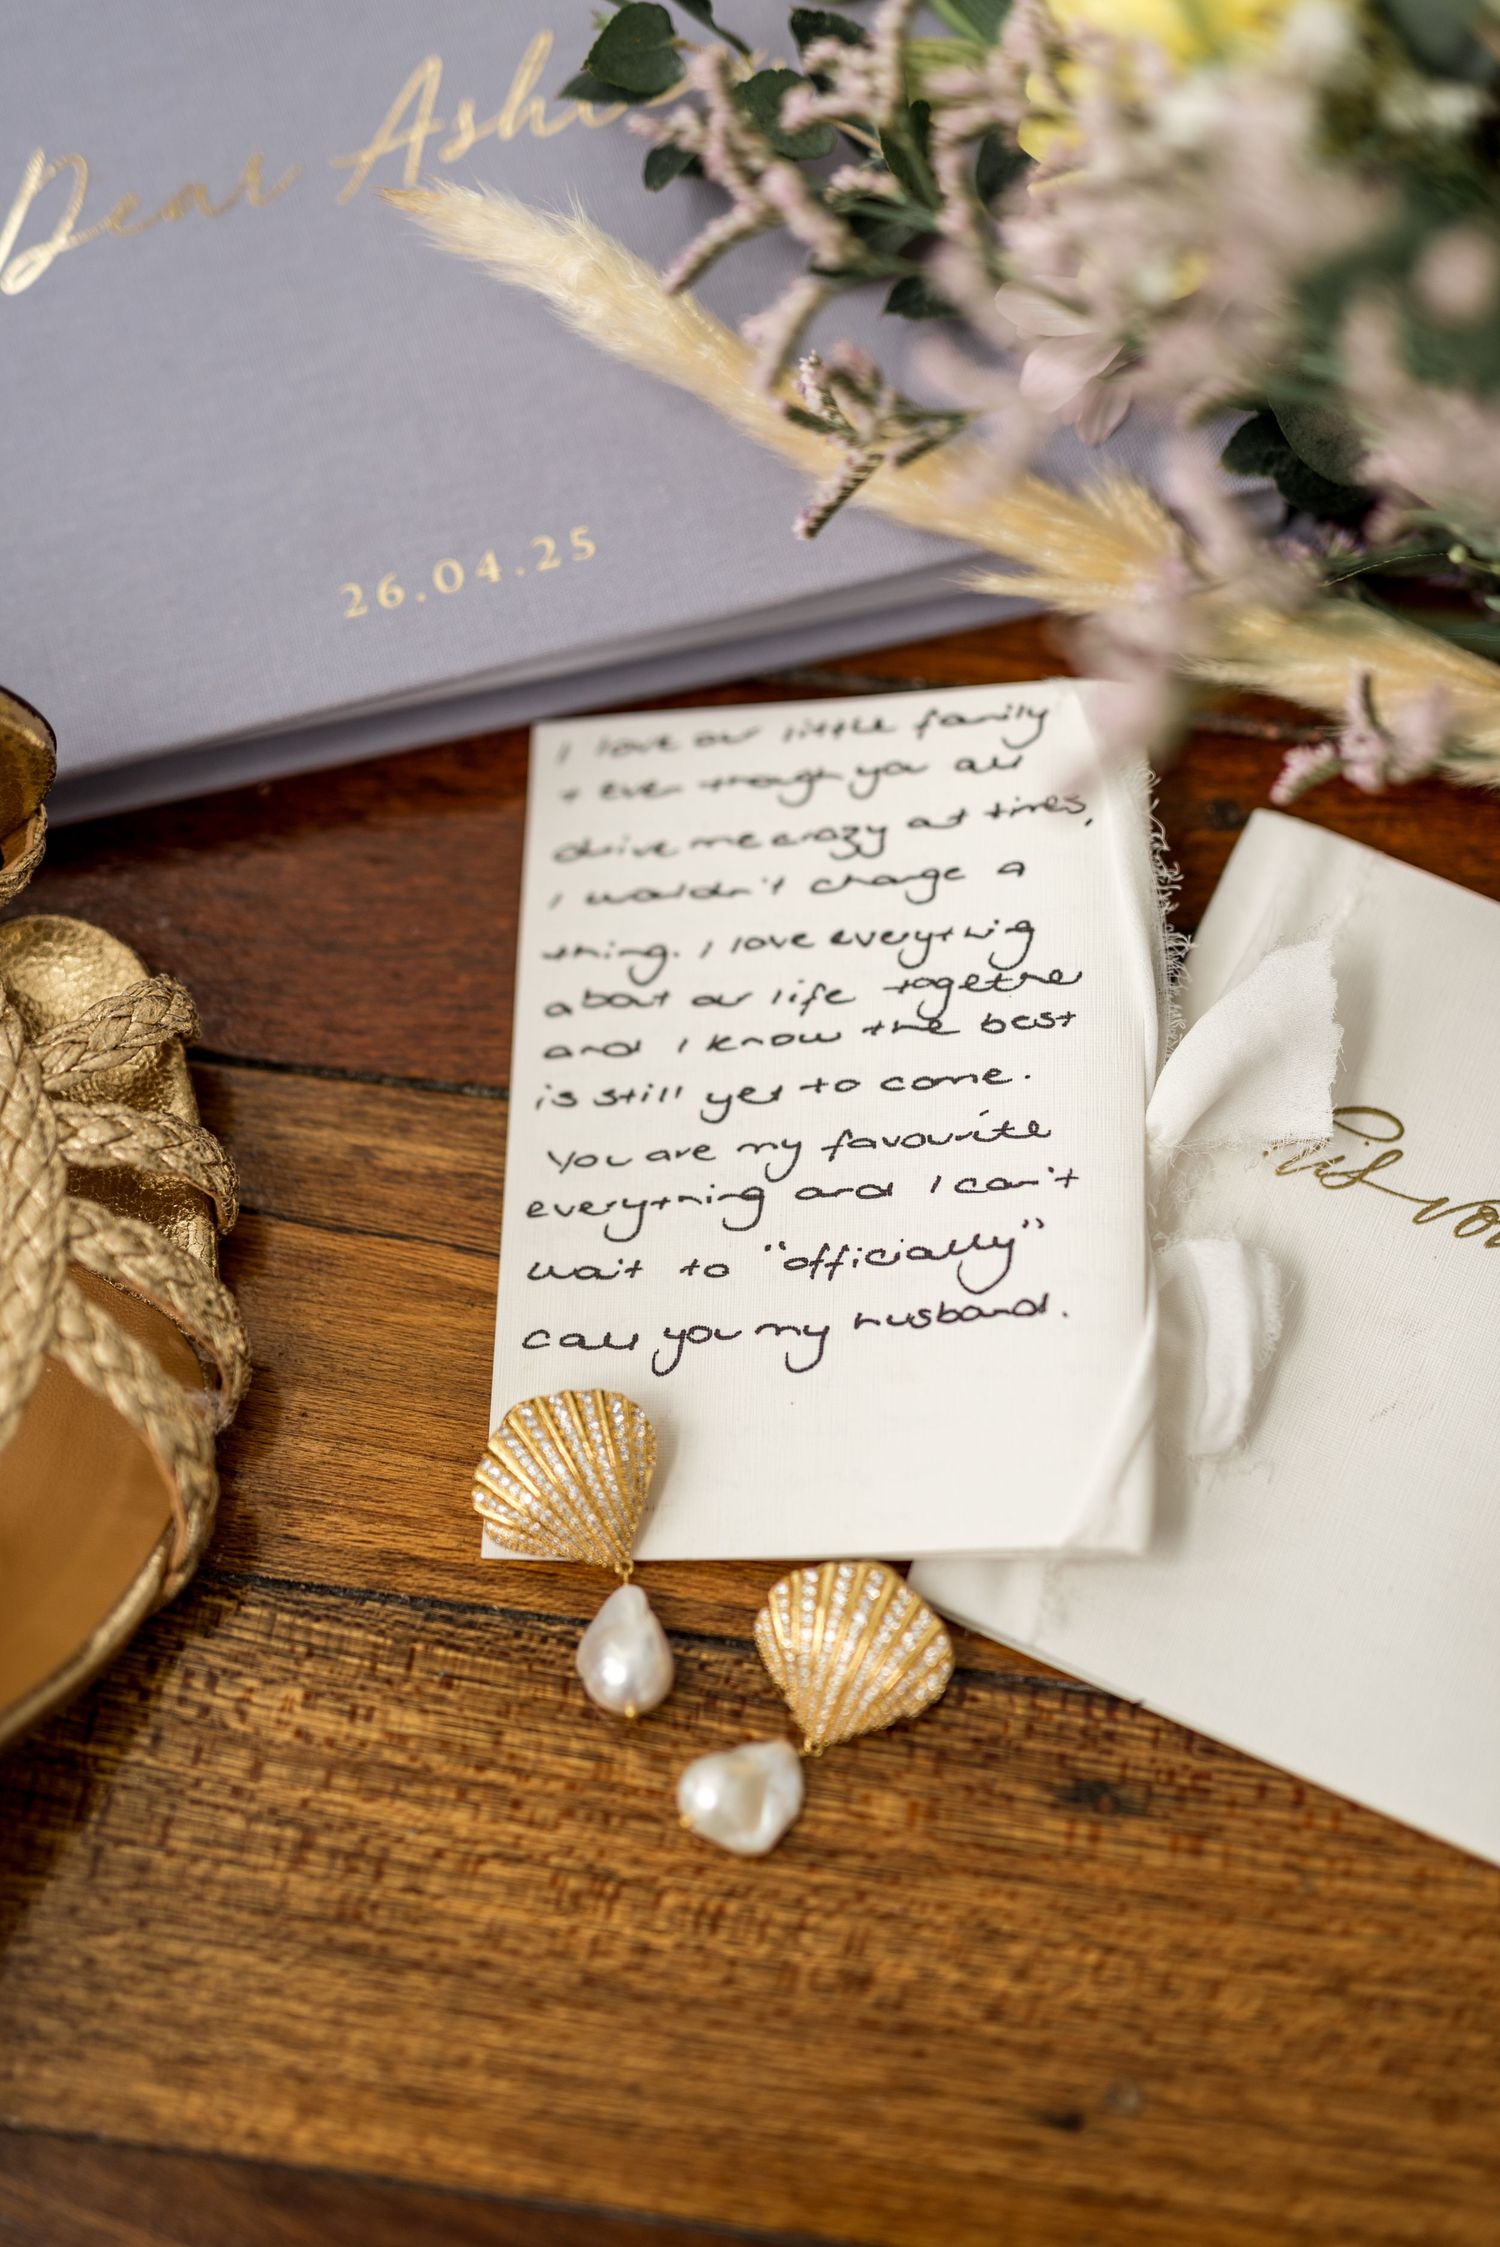 Dear
26.04.25
I love our little family
+ even though you all
drive me crazy at times,
I wouldn't change a
thing. I love everything
about our life together
and I know the best
is still yet to come.
You are my favourite
everything and I can't
wait to "officially"
call you my husband.
his vow